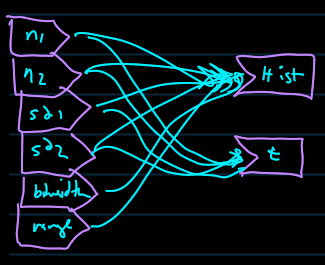 n1
n2
sd1
sd2
binwidth
range
Hist
t